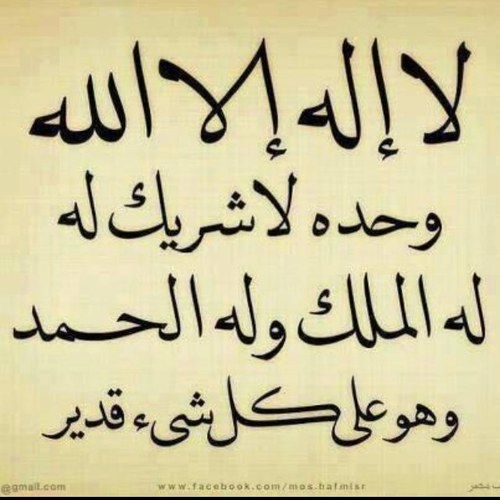 لا إله إلا الله
وحده لا شريك له
له الملك وله الحمد
وهو على كل شىء قدير
@gmail.com www.facebook.com/mos.hafmisr